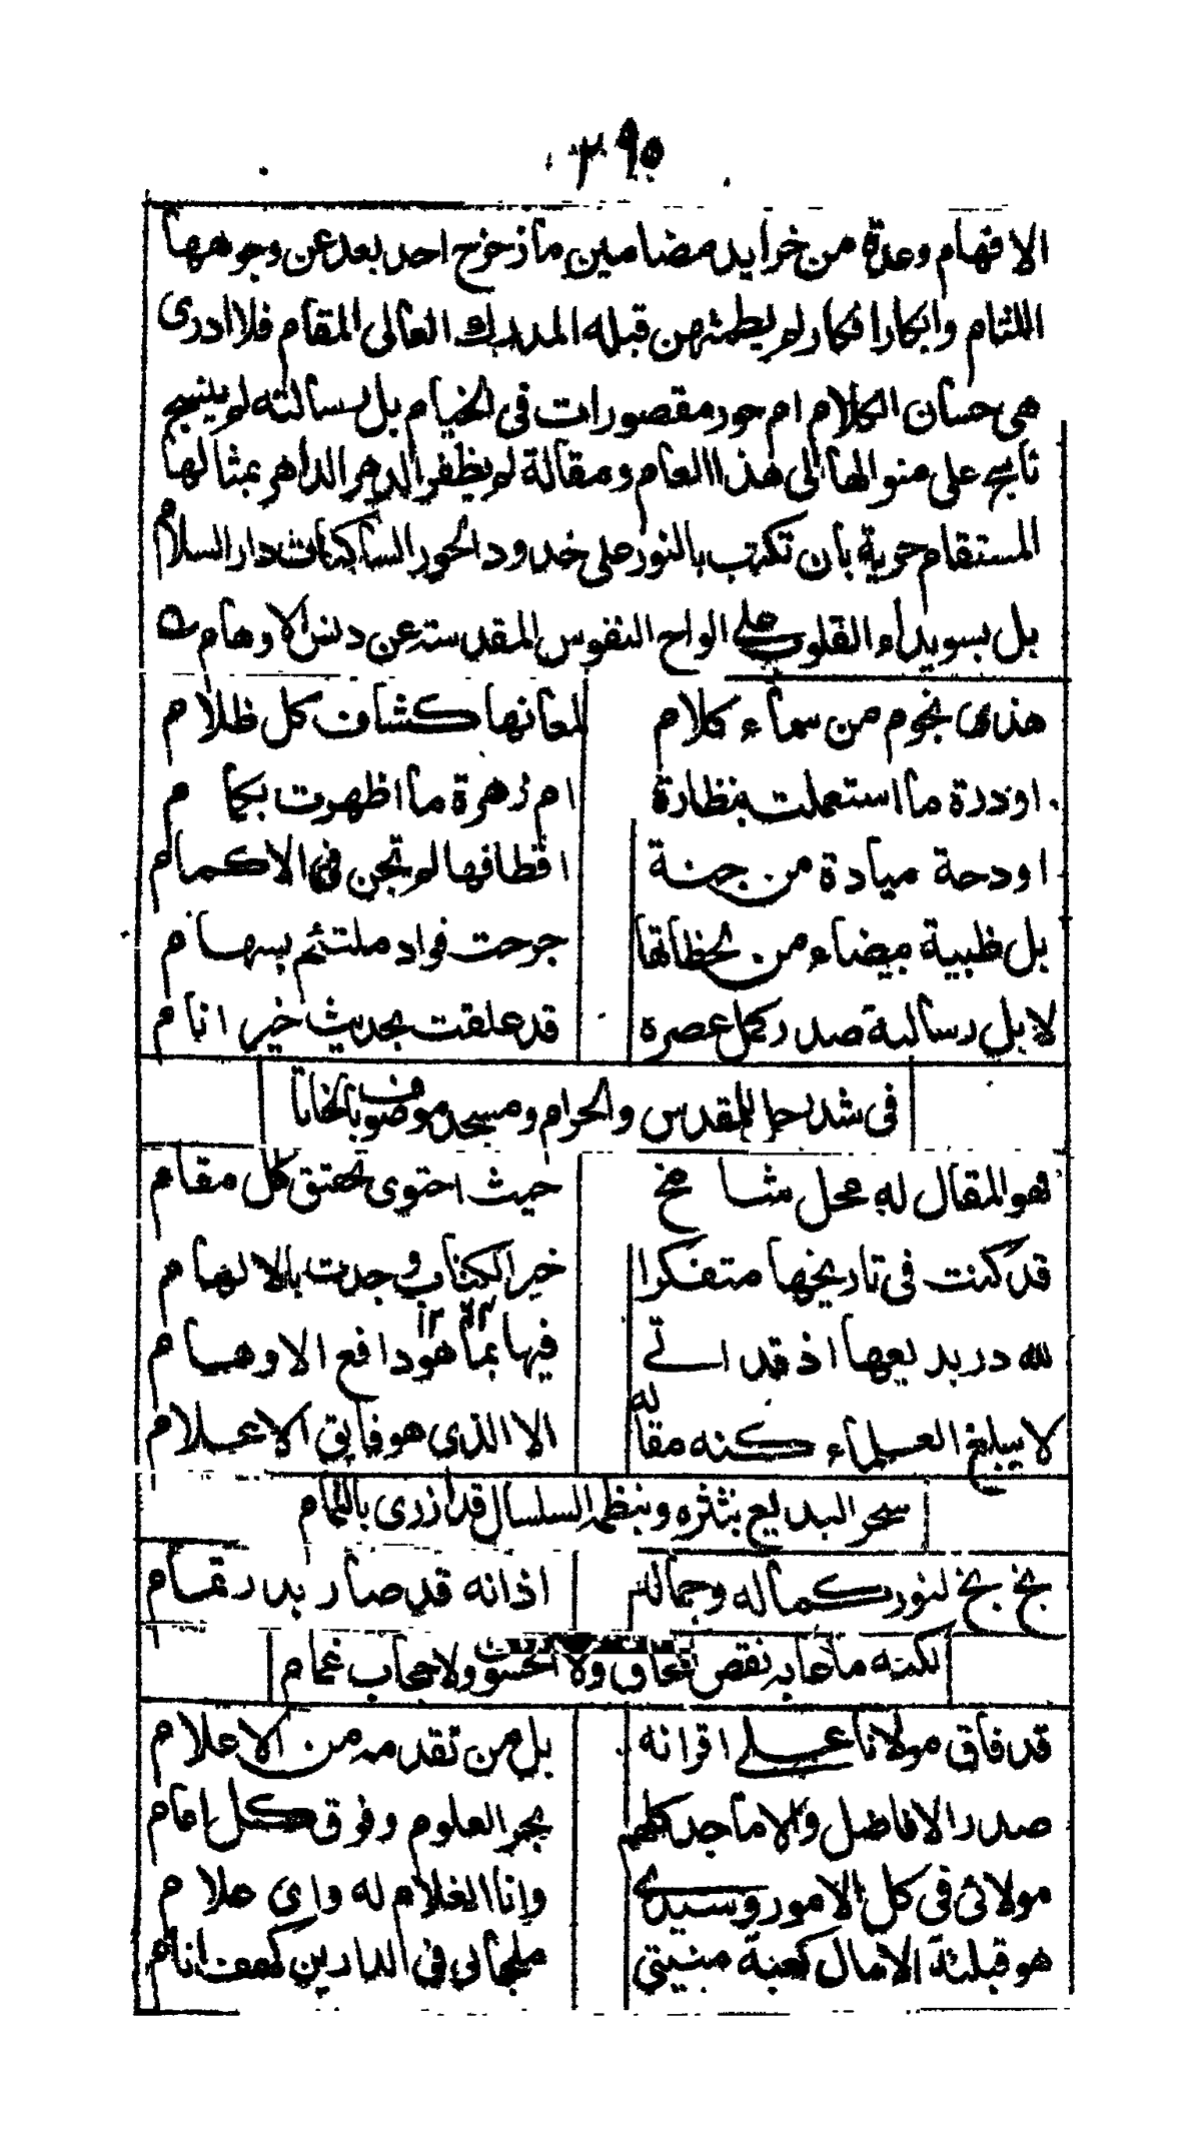 ٣٩٥
الافهام وعدة من خرايد مضامين ما زحزح احد بعد عن وجوهها
اللثام وابكار افكار لم يطمثهن قبله المدرك العالى المقام فلا ادرى
هى حسان الكلام ام حور مقصورات فى الخيام بل رسالته لم ينسج
ناسج على منوالها الى هذا العام ومقالة لم يظفر الدهر الداهر بمثالها
المستقام حرية بان تكتب بالنور على خدود الحور الساكنات دار السلام
بل بسويداء القلوب على الواح النفوس المقدسة عن دنس الاوهام
هذى نجوم من سماء كلام لمعانها كشاف كل ظلام
او درة ما استعملت بنظارة ام زهرة ما اظهرت بكمام
او دحة ميادة من جنة اقطافها لم تجن فى الاكمام
بل ظبية بيضاء من لحظاتها جرحت فواد ملتئم بسهام
لا بل رسالة صدر كمل عصره قد علقت بحديث خير انام
فى شد رحل المقدس والحرام ومسجد موصوف
لهو المقال له محل شامخ حيث احتوى تحقيق كل مقام
قد كنت فى تاريخها متفكرا خير الكتاب وجدت بالالهام
لله در بديعها اذ قد اتى فيها بما هو دافع الاوهام
لا يبلغ العلماء كنه مقاله الا الذى هو فايق الاعلام
سحر البديع بنثره وبنظمه السلسال قد ازرى بالتمام
بخ بخ لنور كماله وجماله اذ انه قد صار بدر تمام
لكنه ما عابه نقص المحاق ولا الخسوف ولا حجاب غمام
قد فاق مولانا على اقرانه بل من تقدمه من الاعلام
صدر الافاضل والاماجد كلهم بحر العلوم وفوق كل امام
مولائى فى كل الامور وسيدى وانا الغلام له واى غلام
هو قبلة الامال كعبة منيتى ملجائى فى الدارين كهف انام